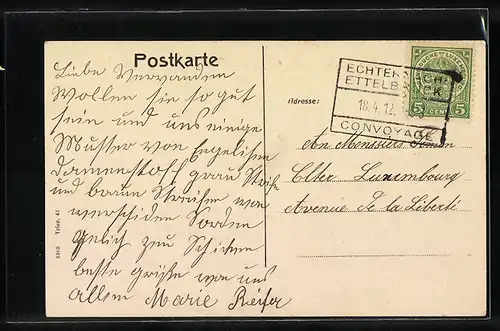 Postkarte
Liebe Verwanden
Wollen sie so gut
sein und uns einige
Muster von Engelisen
damenstoff grau Streife
und braun Streifen von
verschiden Sorden
gelich zeu Schicken
beste griße von uns
allen Marie Reifer
5063 Telef. 41
Adresse:
ECHTER CH-
ETTELB CK
18.4.12.
CONVOYAGE
LUXEMBOURG
5 CENT 5
An Monsieurs Simon
Elter Luxembourg
Avenue de la Liberté